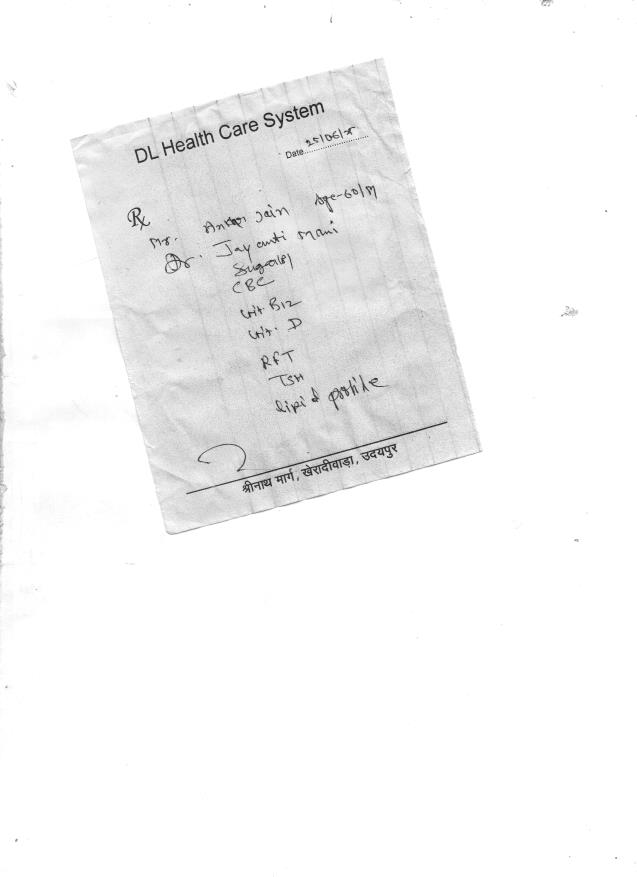 DL Health Care System
Date 25/06/25
Rx
Mr. Jain Age-60/M
Dr. Jayanti Mani
Sugar(R)
CBC
Vit B12
Vit. D
RFT
TSH
lipid profile
श्रीनाथ मार्ग, खेरादीवाड़ा, उदयपुर